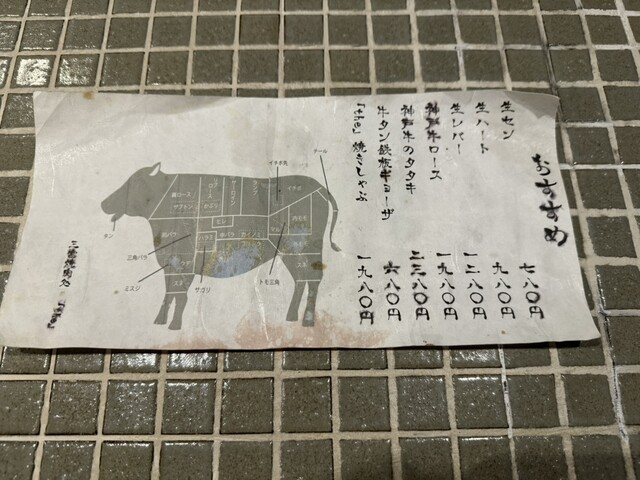 おすすめ
生セン 七八〇円
生ハート 九八〇円
生レバー 一二八〇円
神戸牛ロース 一九八〇円
神戸牛のタタキ 二三八〇円
牛タン鉄瓶ギョーザ 六八〇円
「the」焼きしゃぶ 一九八〇円
テール
イチボ先
イチボ
肩ロース
サーロイン
ランプ
ザブトン
ヒレ
内モモ
マル
カイノミ
中バラ
ハラミ
タン
三角バラ
ミスジ
サゴリ
トモ三角
スネ
スネ